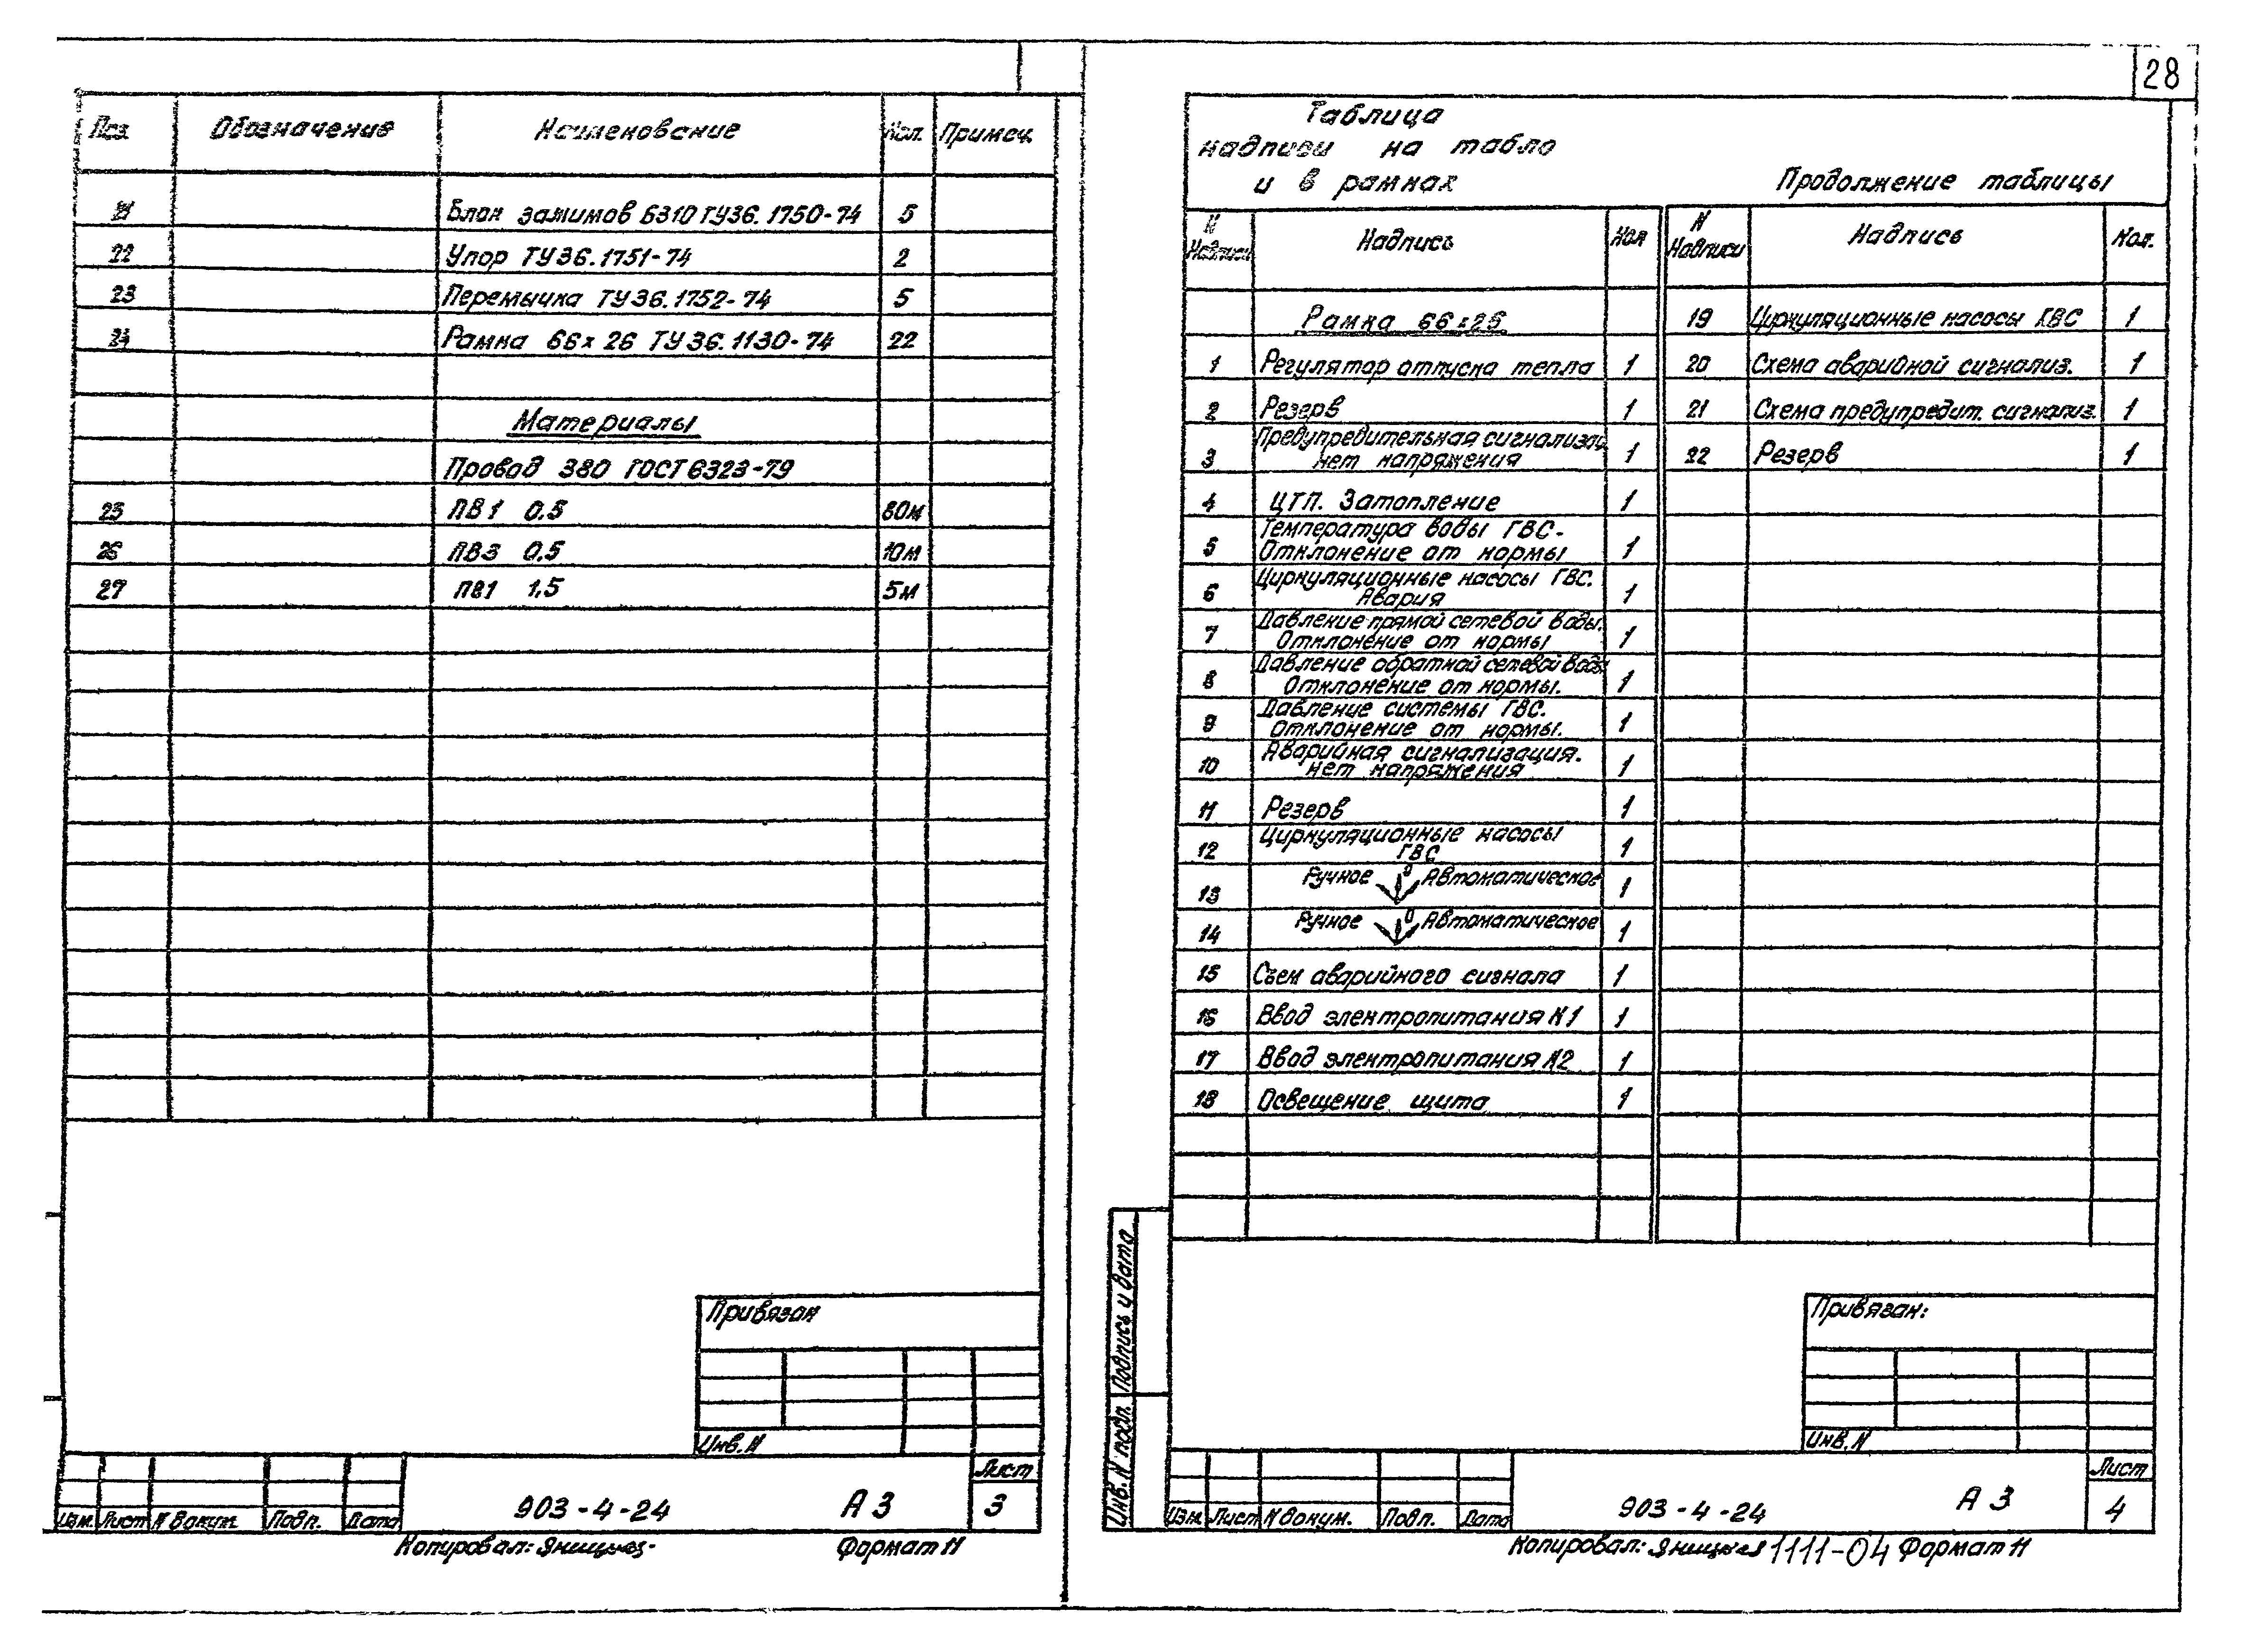 28
Поз. Обозначение Наименование Кол. Примеч.
21 Блок зажимов Б310 ТУ36.1750-74 5
22 Упор ТУ36.1751-74 2
23 Перемычка ТУ36.1752-74 5
24 Рамка 66х26 ТУ36.1130-74 22
Материалы
Провод 380 ГОСТ 6323-79
25 ПВ1 0.5 80м
26 ПВ3 0.5 10м
27 ПВ1 1.5 5м
Привязан
Инв. N
Изм. Лист N докум. Подп. Дата
903-4-24 А3
Лист
3
Копировал: Формат 11
Таблица
надписи на табло
и в рамках
Продолжение таблицы
N Надписи Надпись Кол
Рамка 66х26
1 Регулятор отпуска тепла 1
2 Резерв 1
3 Предупредительная сигнализац.
нет напряжения 1
4 ЦТП. Затопление 1
5 Температура воды ГВС-
Отклонение от нормы 1
6 Циркуляционные насосы ГВС.
Авария 1
7 Давление прямой сетевой воды.
Отклонение от нормы 1
8 Давление обратной сетевой воды
Отклонение от нормы. 1
9 Давление системы ГВС.
Отклонение от нормы. 1
10 Аварийная сигнализация.
нет напряжения 1
11 Резерв 1
12 Циркуляционные насосы
ГВС 1
13 Ручное 0 Автоматическое 1
14 Ручное 0 Автоматическое 1
15 Съем аварийного сигнала 1
16 Ввод электропитания N1 1
17 Ввод электропитания N2 1
18 Освещение щита 1
N Надписи Надпись Кол.
19 Циркуляционные насосы ГВС 1
20 Схема аварийной сигнализ. 1
21 Схема предупредит. сигнализ. 1
22 Резерв 1
Инв. N подл. Подпись и дата
Привязан:
Инв. N
Изм. Лист N докум. Подп. Дата
903-4-24 А3
Лист
4
Копировал: 1111-04 Формат 11